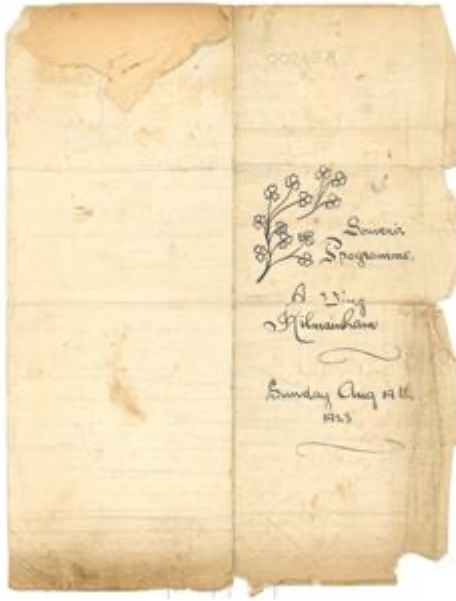 Souvenir
Programme.
A Wing
Kilmainham
Sunday Aug 19th
1923